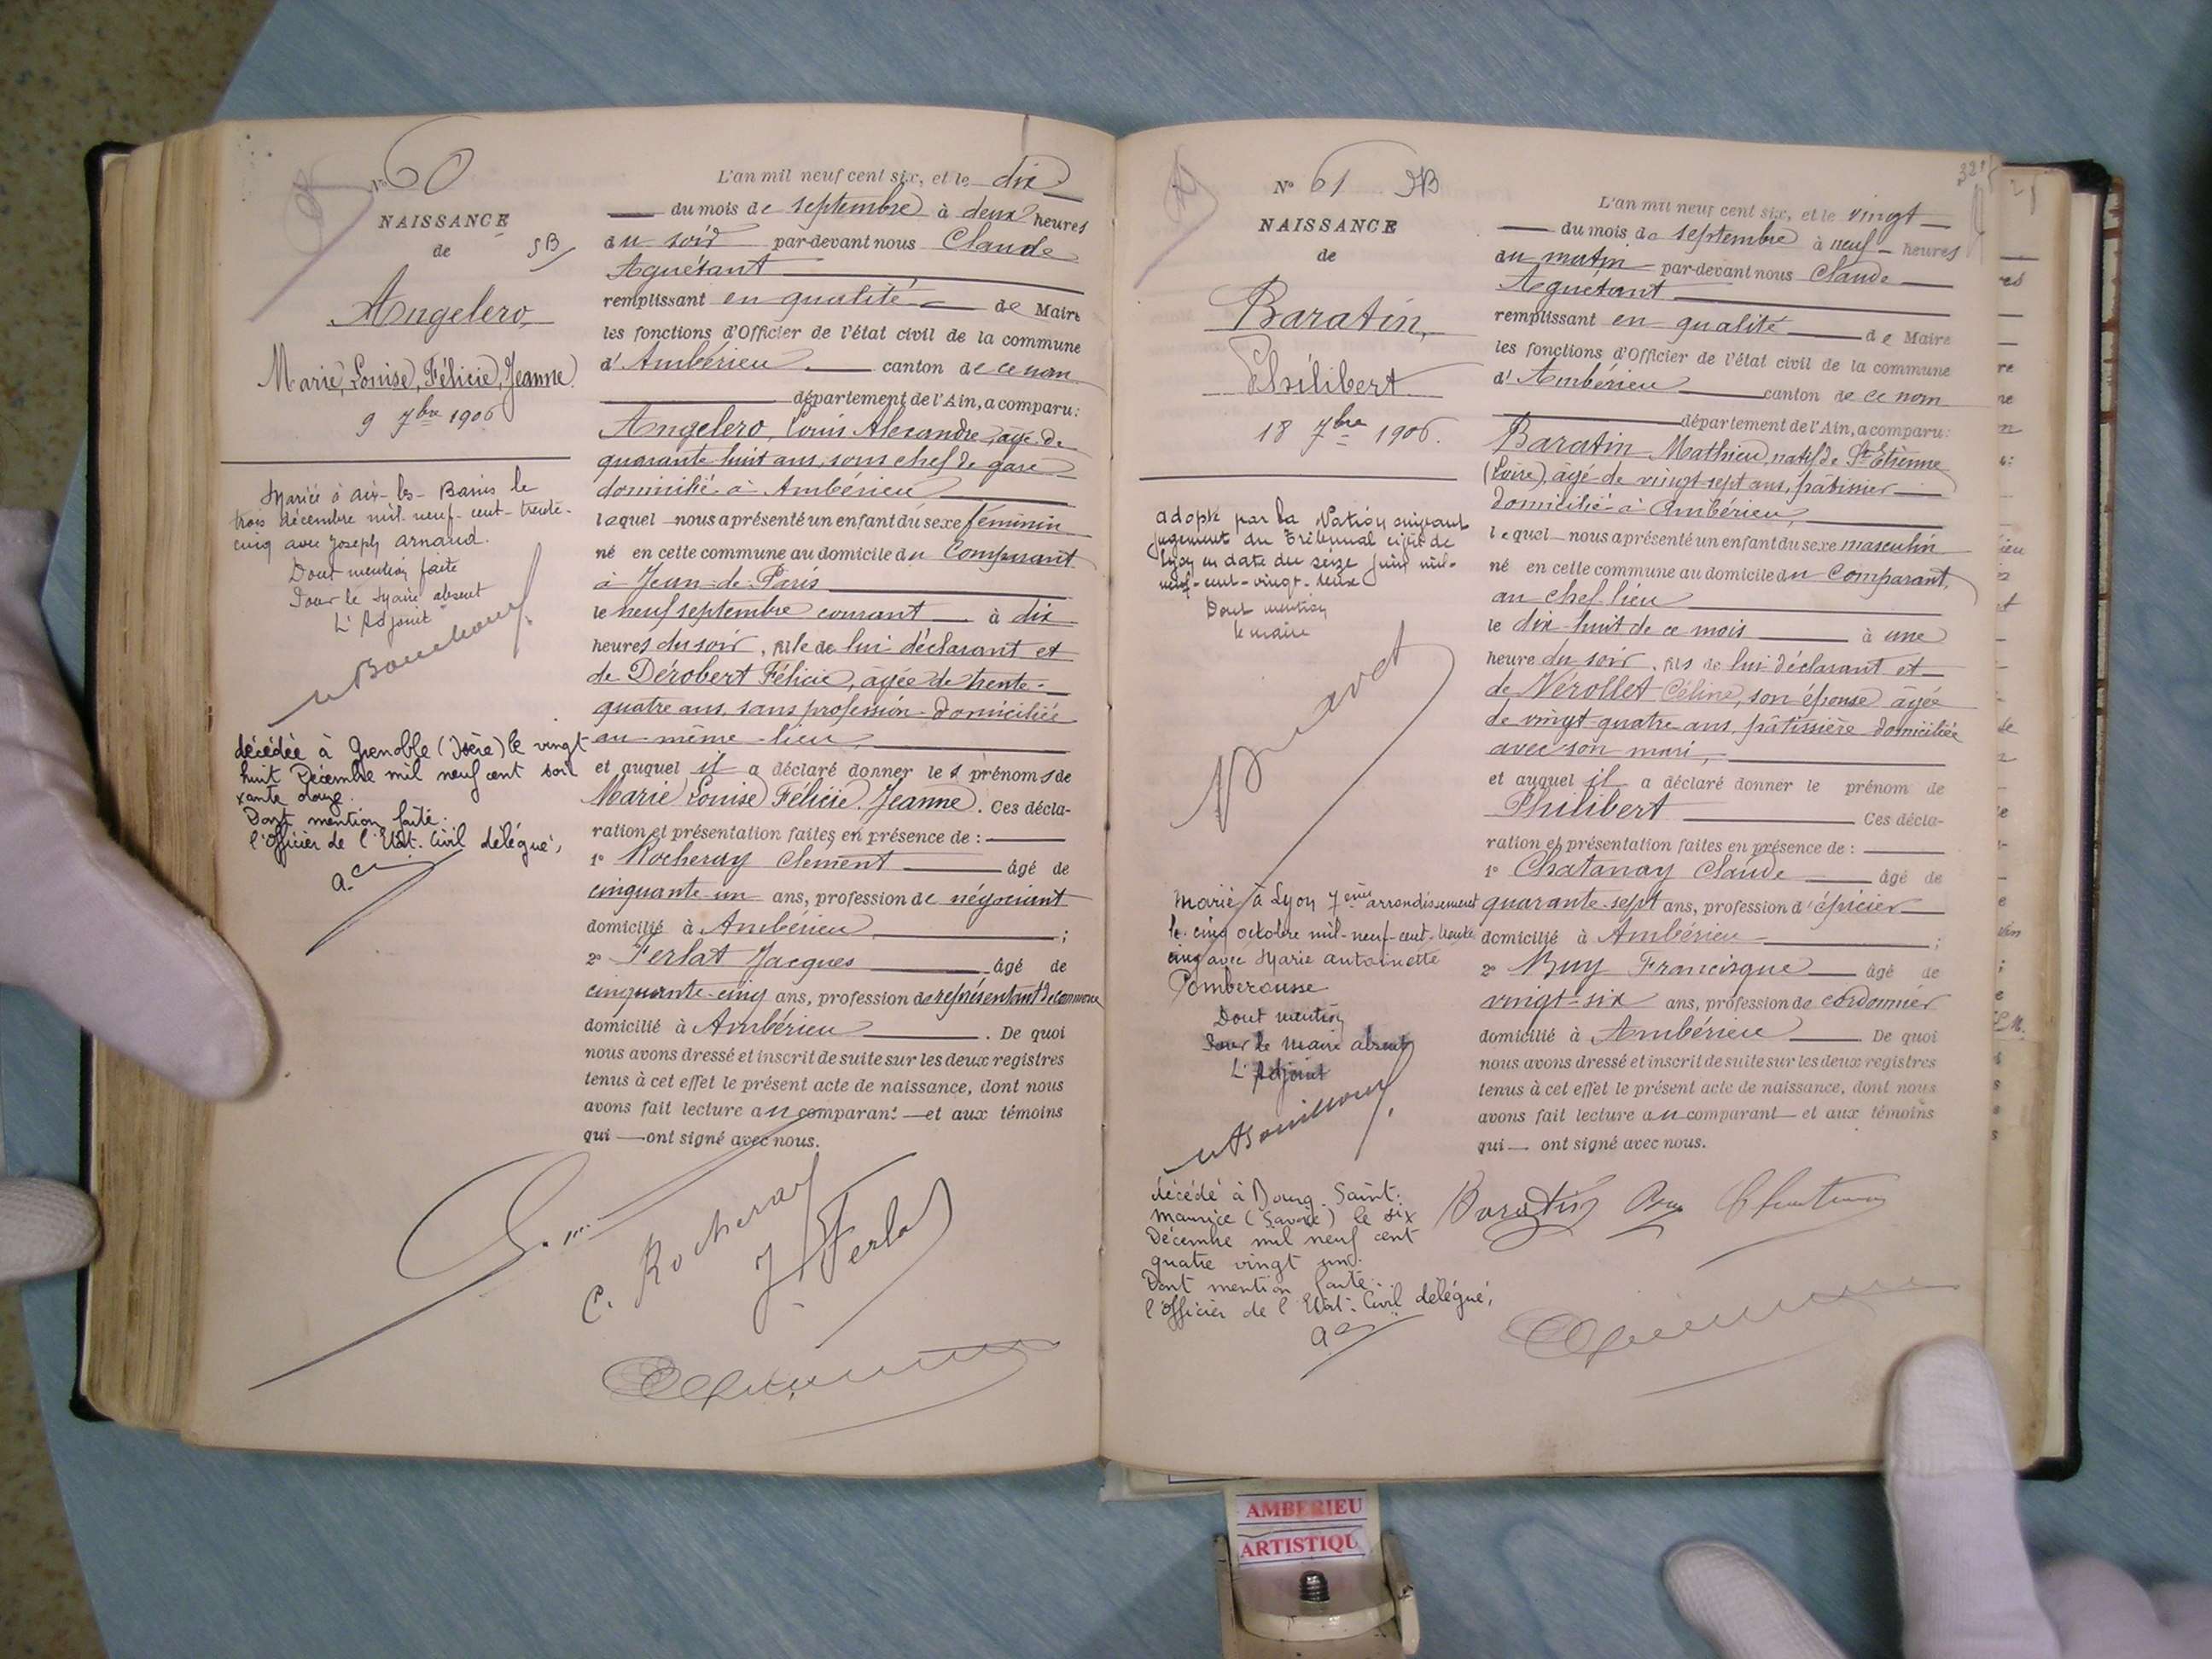 N° 60
NAISSANCE
de
SB
Angelero
Marie, Louise, Félicie, Jeanne
9 7bre 1906
Mariée à Aix-les-Bains le
trois décembre mil-neuf-cent-trente-
cinq avec Joseph Arnaud.
Dont mention faite
Pour le Maire absent
L'Adjoint
décédée à Grenoble (Isère) le vingt
huit Décembre mil neuf cent soi
xante douze.
Dont mention faite.
l'Officier de l'Etat-Civil délégué,
L'an mil neuf cent six, et le dix
du mois de septembre à deux heures
du soir par-devant nous Claude
Aguétant
remplissant en qualité de Maire
les fonctions d'Officier de l'état civil de la commune
d'Ambérieu canton de ce nom
département de l'Ain, a comparu:
Angelero, Louis Alexandre, âgé de
quarante-huit ans, sous chef de gare
domicilié à Ambérieu
lequel nous a présenté un enfant du sexe féminin
né en cette commune au domicile du Comparant
à Jean-de-Paris
le neuf septembre courant à dix
heures du soir, fille de lui déclarant et
de Dérobert Félicie, âgée de trente-
quatre ans, sans profession domiciliée
au même lieu,
et auquel il a déclaré donner les prénoms de
Marie Louise Félicie Jeanne. Ces décla-
ration et présentation faites en présence de :
1° Rocheray Clément âgé de
cinquante-un ans, profession de négociant
domicilié à Ambérieu ;
2° Ferlat Jacques âgé de
cinquante-cinq ans, profession de représentant de commerce
domicilié à Ambérieu . De quoi
nous avons dressé et inscrit de suite sur les deux registres
tenus à cet effet le présent acte de naissance, dont nous
avons fait lecture au comparant et aux témoins
qui ont signé avec nous.
C. Rocheray
J. Ferlat
321
N° 61 SB
NAISSANCE
de
Baratin,
Philibert
18 7bre 1906.
adopté par la Nation suivant
jugement du Tribunal civil de
Lyon en date du seize juin mil-
neuf-cent-vingt-deux
Dont mention
le maire
Marié à Lyon 7ème arrondissement
le cinq octobre mil-neuf-cent-trente
cinq avec Marie Antoinette
Pomberousse
Dont mention
Pour le Maire absent
L'Adjoint
décédé à Bourg-Saint-
Maurice (Savoie) le six
Décembre mil neuf cent
quatre vingt un.
Dont mention faite.
l'Officier de l'Etat-Civil délégué,
L'an mil neuf cent six, et le vingt
du mois de septembre à neuf heures
du matin par-devant nous Claude
Aguétant
remplissant en qualité de Maire
les fonctions d'Officier de l'état civil de la commune
d'Ambérieu canton de ce nom
département de l'Ain, a comparu:
Baratin Mathieu, natif de St Etienne
(Loire), âgé de vingt-sept ans, pâtissier
domicilié à Ambérieu,
lequel nous a présenté un enfant du sexe masculin
né en cette commune au domicile du Comparant
au chef lieu
le dix-huit de ce mois à une
heure du soir, fils de lui déclarant et
de Nérollet Céline, son épouse âgée
de vingt-quatre ans, pâtissière domiciliée
avec son mari,
et auquel il a déclaré donner le prénom de
Philibert Ces décla-
ration et présentation faites en présence de :
1° Chatanay Claude âgé de
quarante-sept ans, profession d'épicier
domicilié à Ambérieu ;
2° Buy Francisque âgé de
vingt-six ans, profession de cordonnier
domicilié à Ambérieu De quoi
nous avons dressé et inscrit de suite sur les deux registres
tenus à cet effet le présent acte de naissance, dont nous
avons fait lecture au comparant et aux témoins
qui ont signé avec nous.
Baratin Buy
AMBERIEU
ARTISTIQU